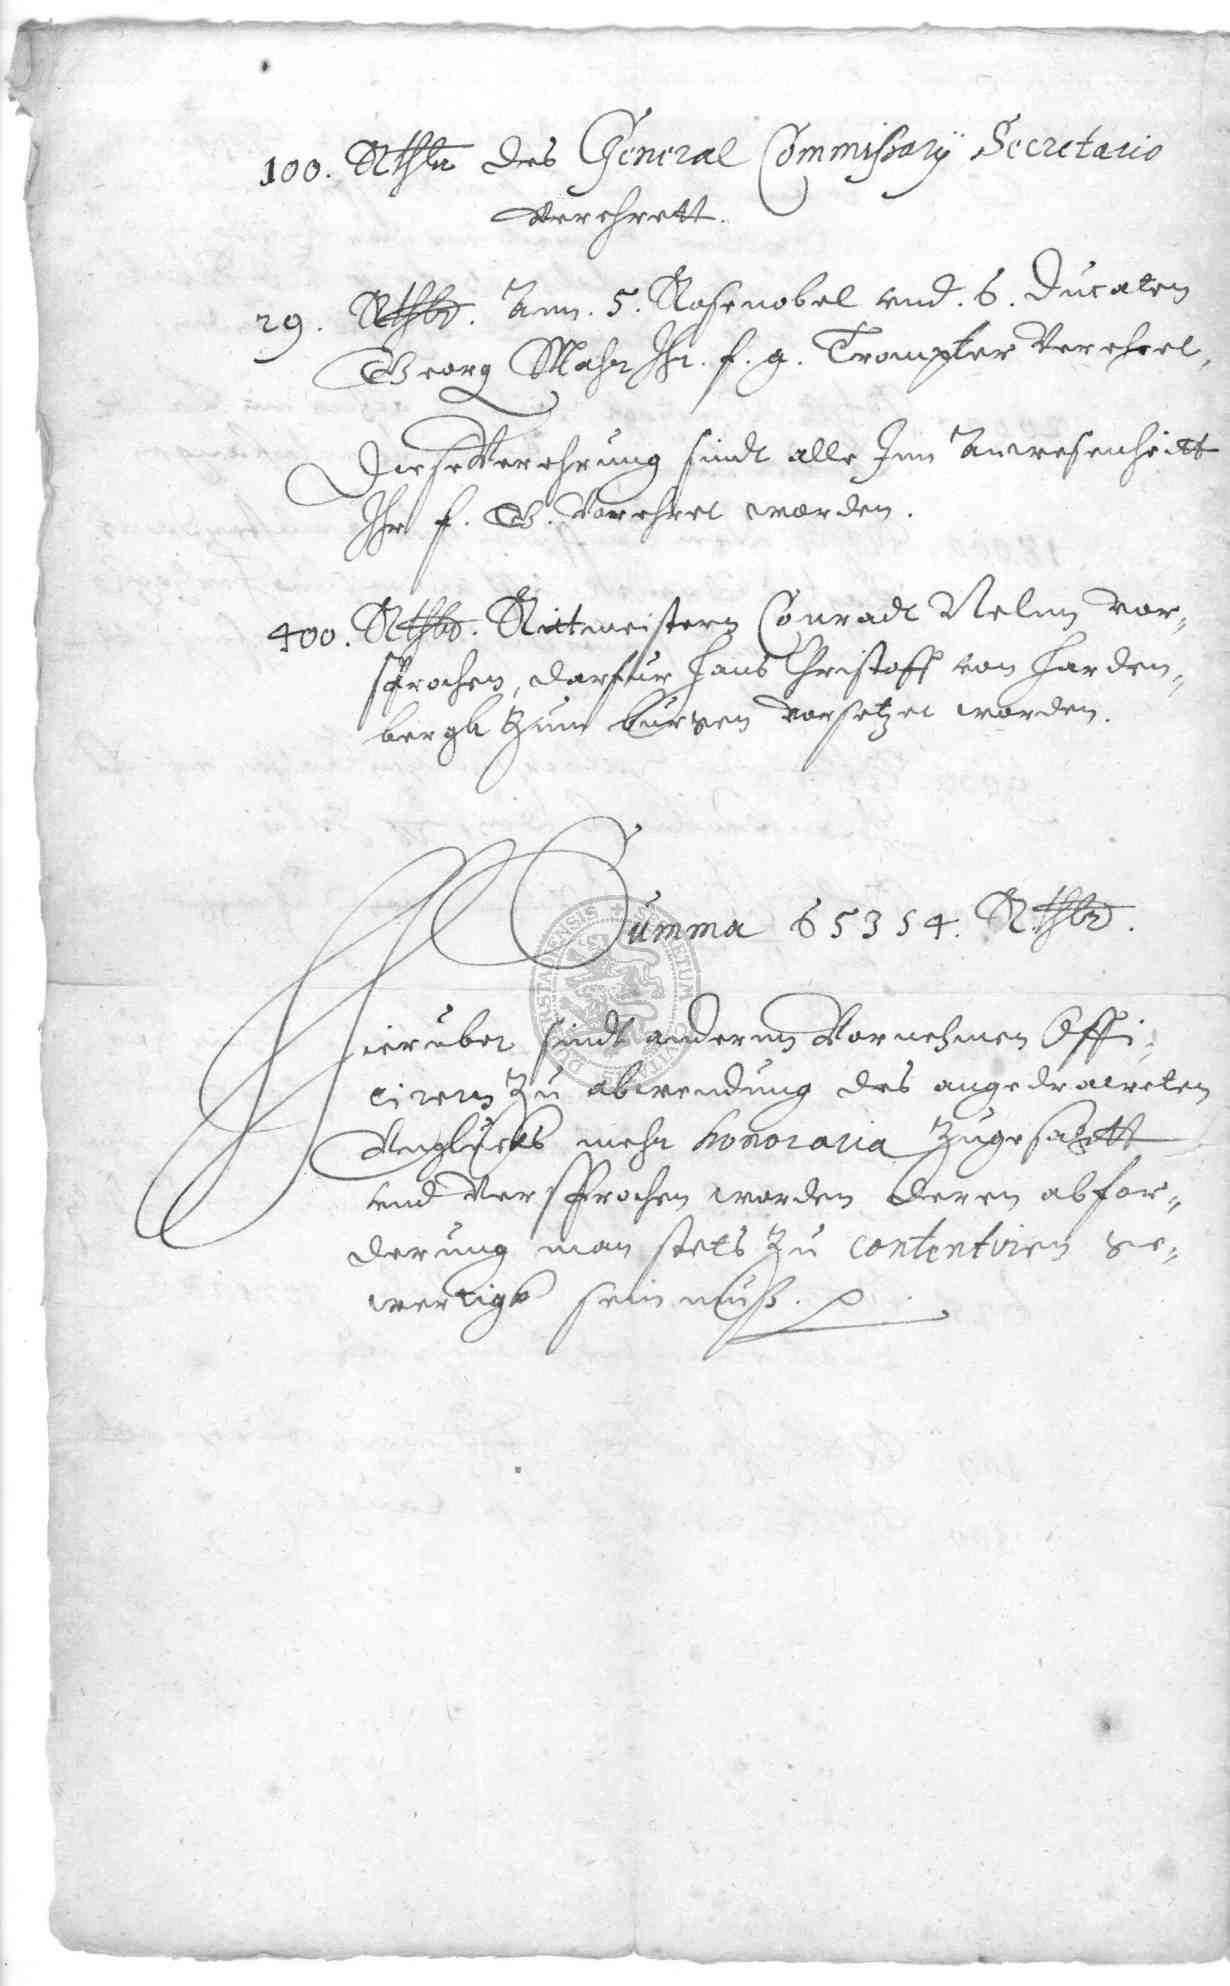 100. Rthlr des General Commissarÿ Secretario
Verehrett.
29. Rthlr. Ann. 5. Rosenobel vnd. 6. Ducaten
Georg Mahr Ihr. f. g. Trompter Verehret,
Diese Verehrung sindt alle Inn Anwesenheitt
Ihr f. G. Vorehret worden.
400. Rthlr. Rittmeistern Conradt Nelen vor„
sprochen, darfur Hans Christoff von Harden„
bergk zum burgen vorsetzet worden.
Summa 65354. Rthlr.
Hieruber sindt anderen Vornehmen Offi„
cirern zu abwendung des angedraweten
Vnglucks mehr honoraria zugesagtt
vnd Versprochen worden deren abfor„
derung man stets zu contentiren ge„
wertigk sein muß.